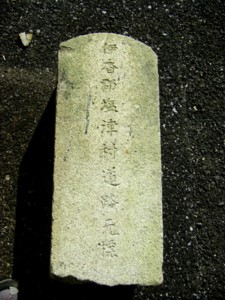 伊香郡塩津村道路元標